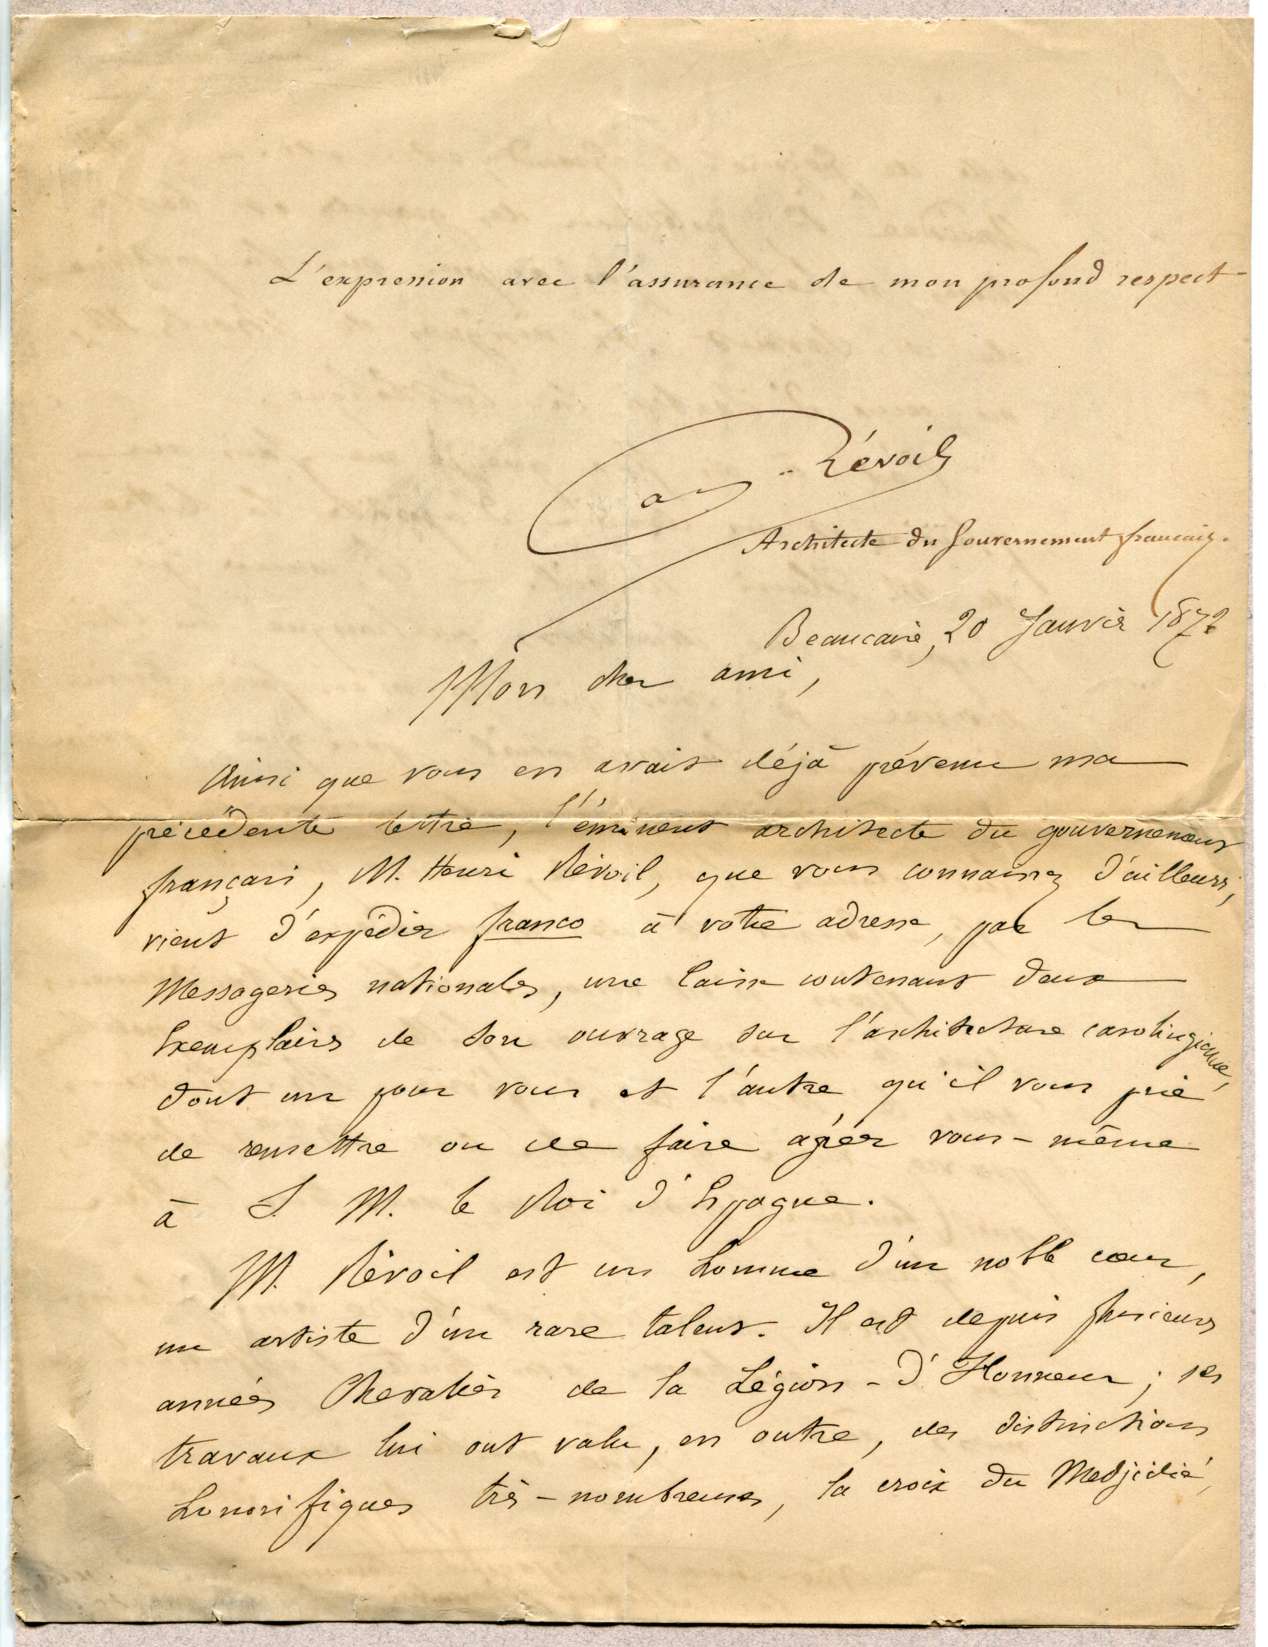 L'expression avec l'assurance de mon profond respect
Révoil
Architecte du Gouvernement français.
Beaucaire, 20 Janvier 187
Mon cher ami,
Ainsi que vous en avait déjà prévenu ma
précédente lettre, l'éminent architecte du gouvernement
français, M. Henri Révoil, que vous connaissez d'ailleurs,
vient d'expédier franco à votre adresse, par les
Messageries nationales, une Caisse contenant deux
Exemplaires de son ouvrage sur l'architecture carolingienne,
dont un pour vous et l'autre qu'il vous prie
de remettre ou de faire agréer vous-même
à S. M. le Roi d'Espagne.
M. Révoil est un homme d'un noble cœur,
un artiste d'un rare talent. Il est depuis plusieurs
années Chevalier de la Légion-d'Honneur ; ses
travaux lui ont valu, en outre, des distinctions
honorifiques très-nombreuses, la croix du Medjidié,